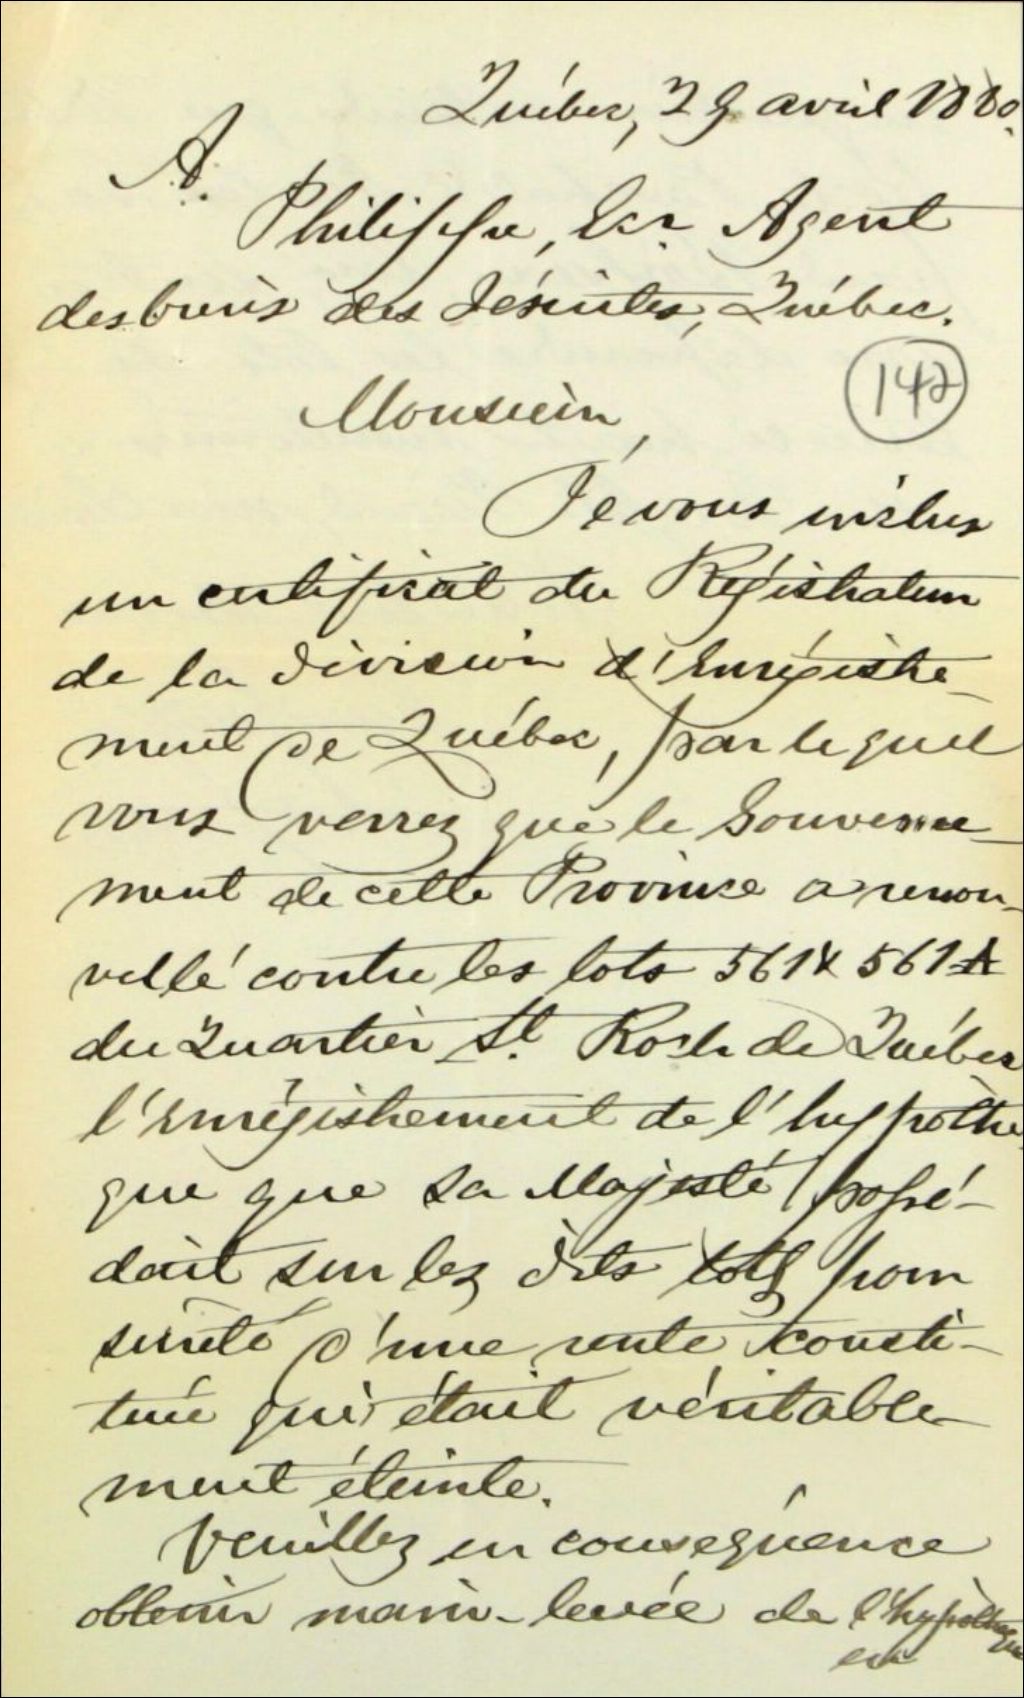 Québec, 29 avril 1880.
A.
Philippe, Ecr Agent
des biens des Jésuites, Québec.
142
Monsieur,
Je vous inclus
un certificat du Régistrateur
de la division d'Enrégistre-
ment de Québec, par lequel
vous verrez que le Gouverne-
ment de cette Province a renou-
vellé contre les lots 561 & 561 A
du Quartier St. Roch de Québec
l'Enrégistrement de l'hypothè-
que que Sa Majesté possé-
dait sur les dits lots pour
sureté d'une rente consti-
tuée qui était véritable-
ment éteinte.
Veuillez en conséquence
obtenir main-levée de l'hypothèque
en